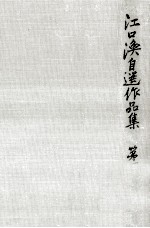 江口渙自選作品集 第